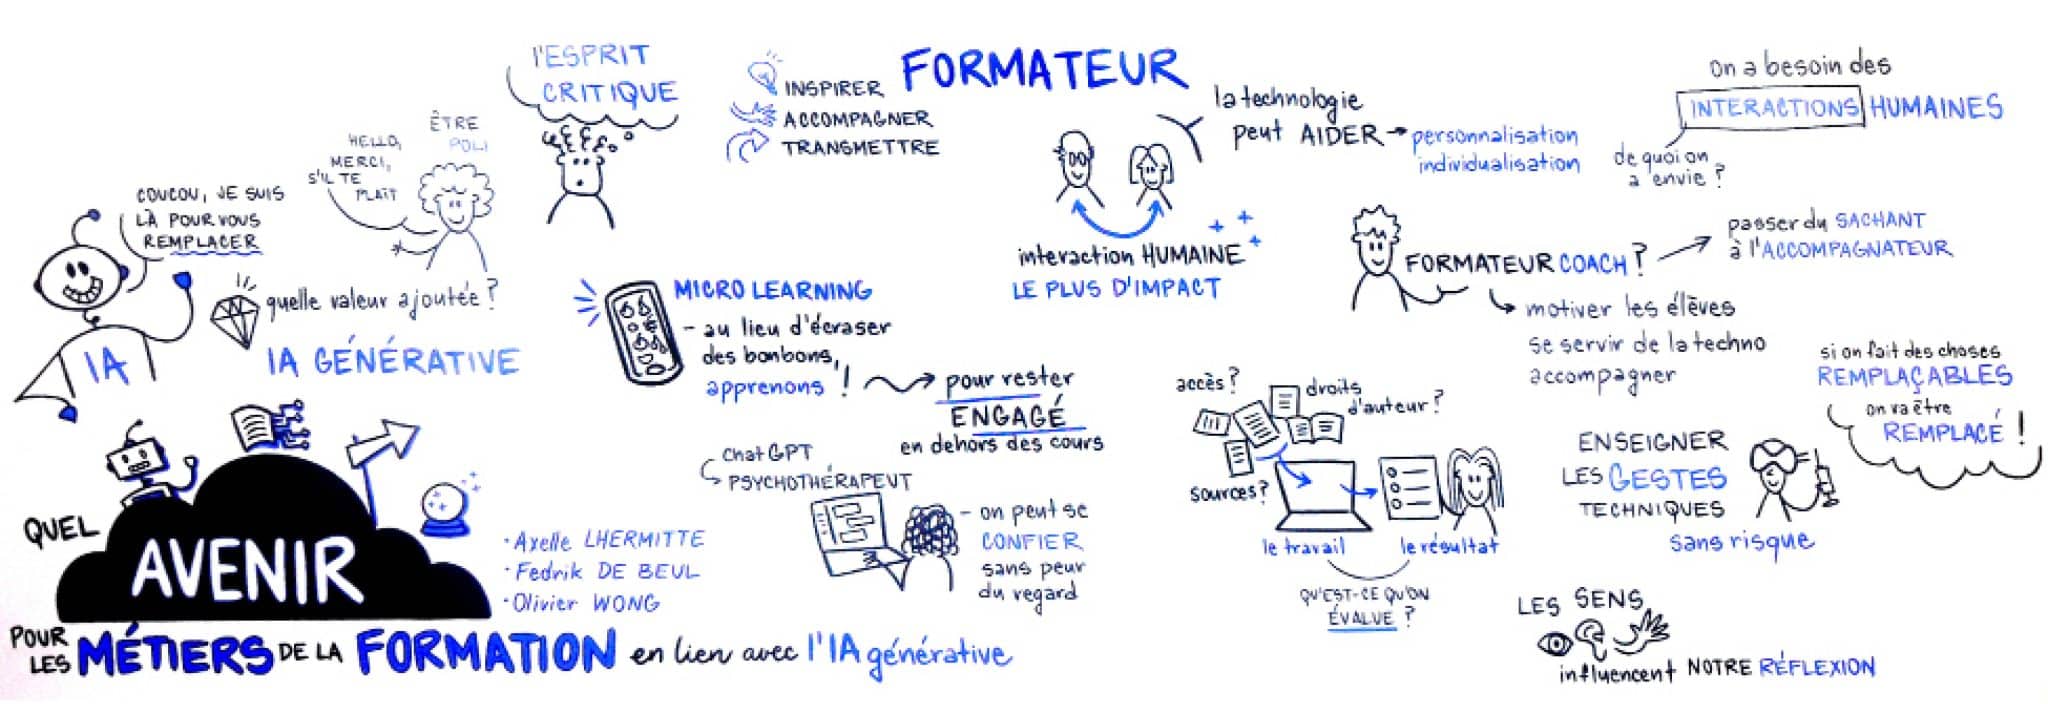 QUEL
AVENIR
POUR
LES MÉTIERS DE LA FORMATION en lien avec l'IA générative
• Axelle LHERMITTE
• Fedrik DE BEUL
• Olivier WONG
COUCOU, JE SUIS
LÀ POUR VOUS
REMPLACER
IA
HELLO,
MERCI,
S'IL TE
PLAIT
ÊTRE
POLI
quelle valeur ajoutée ?
IA GÉNÉRATIVE
l'ESPRIT
CRITIQUE
INSPIRER
ACCOMPAGNER
TRANSMETTRE
FORMATEUR
MICRO LEARNING
- au lieu d'écraser
des bonbons,
apprenons !
pour rester
ENGAGÉ
en dehors des cours
Chat GPT
PSYCHOTHÉRAPEUT
- on peut se
CONFIER
sans peur
du regard
interaction HUMAINE
LE PLUS D'IMPACT
la technologie
peut AIDER
personnalisation
individualisation
on a besoin des
INTERACTIONS HUMAINES
de quoi on
a envie ?
FORMATEUR COACH ?
passer du SACHANT
à l'ACCOMPAGNATEUR
motiver les élèves
se servir de la techno
accompagner
accès ?
droits
d'auteur ?
sources ?
le travail
le résultat
QU'EST-CE QU'ON
ÉVALUE ?
si on fait des choses
REMPLAÇABLES
on va être
REMPLACÉ !
ENSEIGNER
LES GESTES
TECHNIQUES
sans risque
LES SENS
influencent NOTRE RÉFLEXION